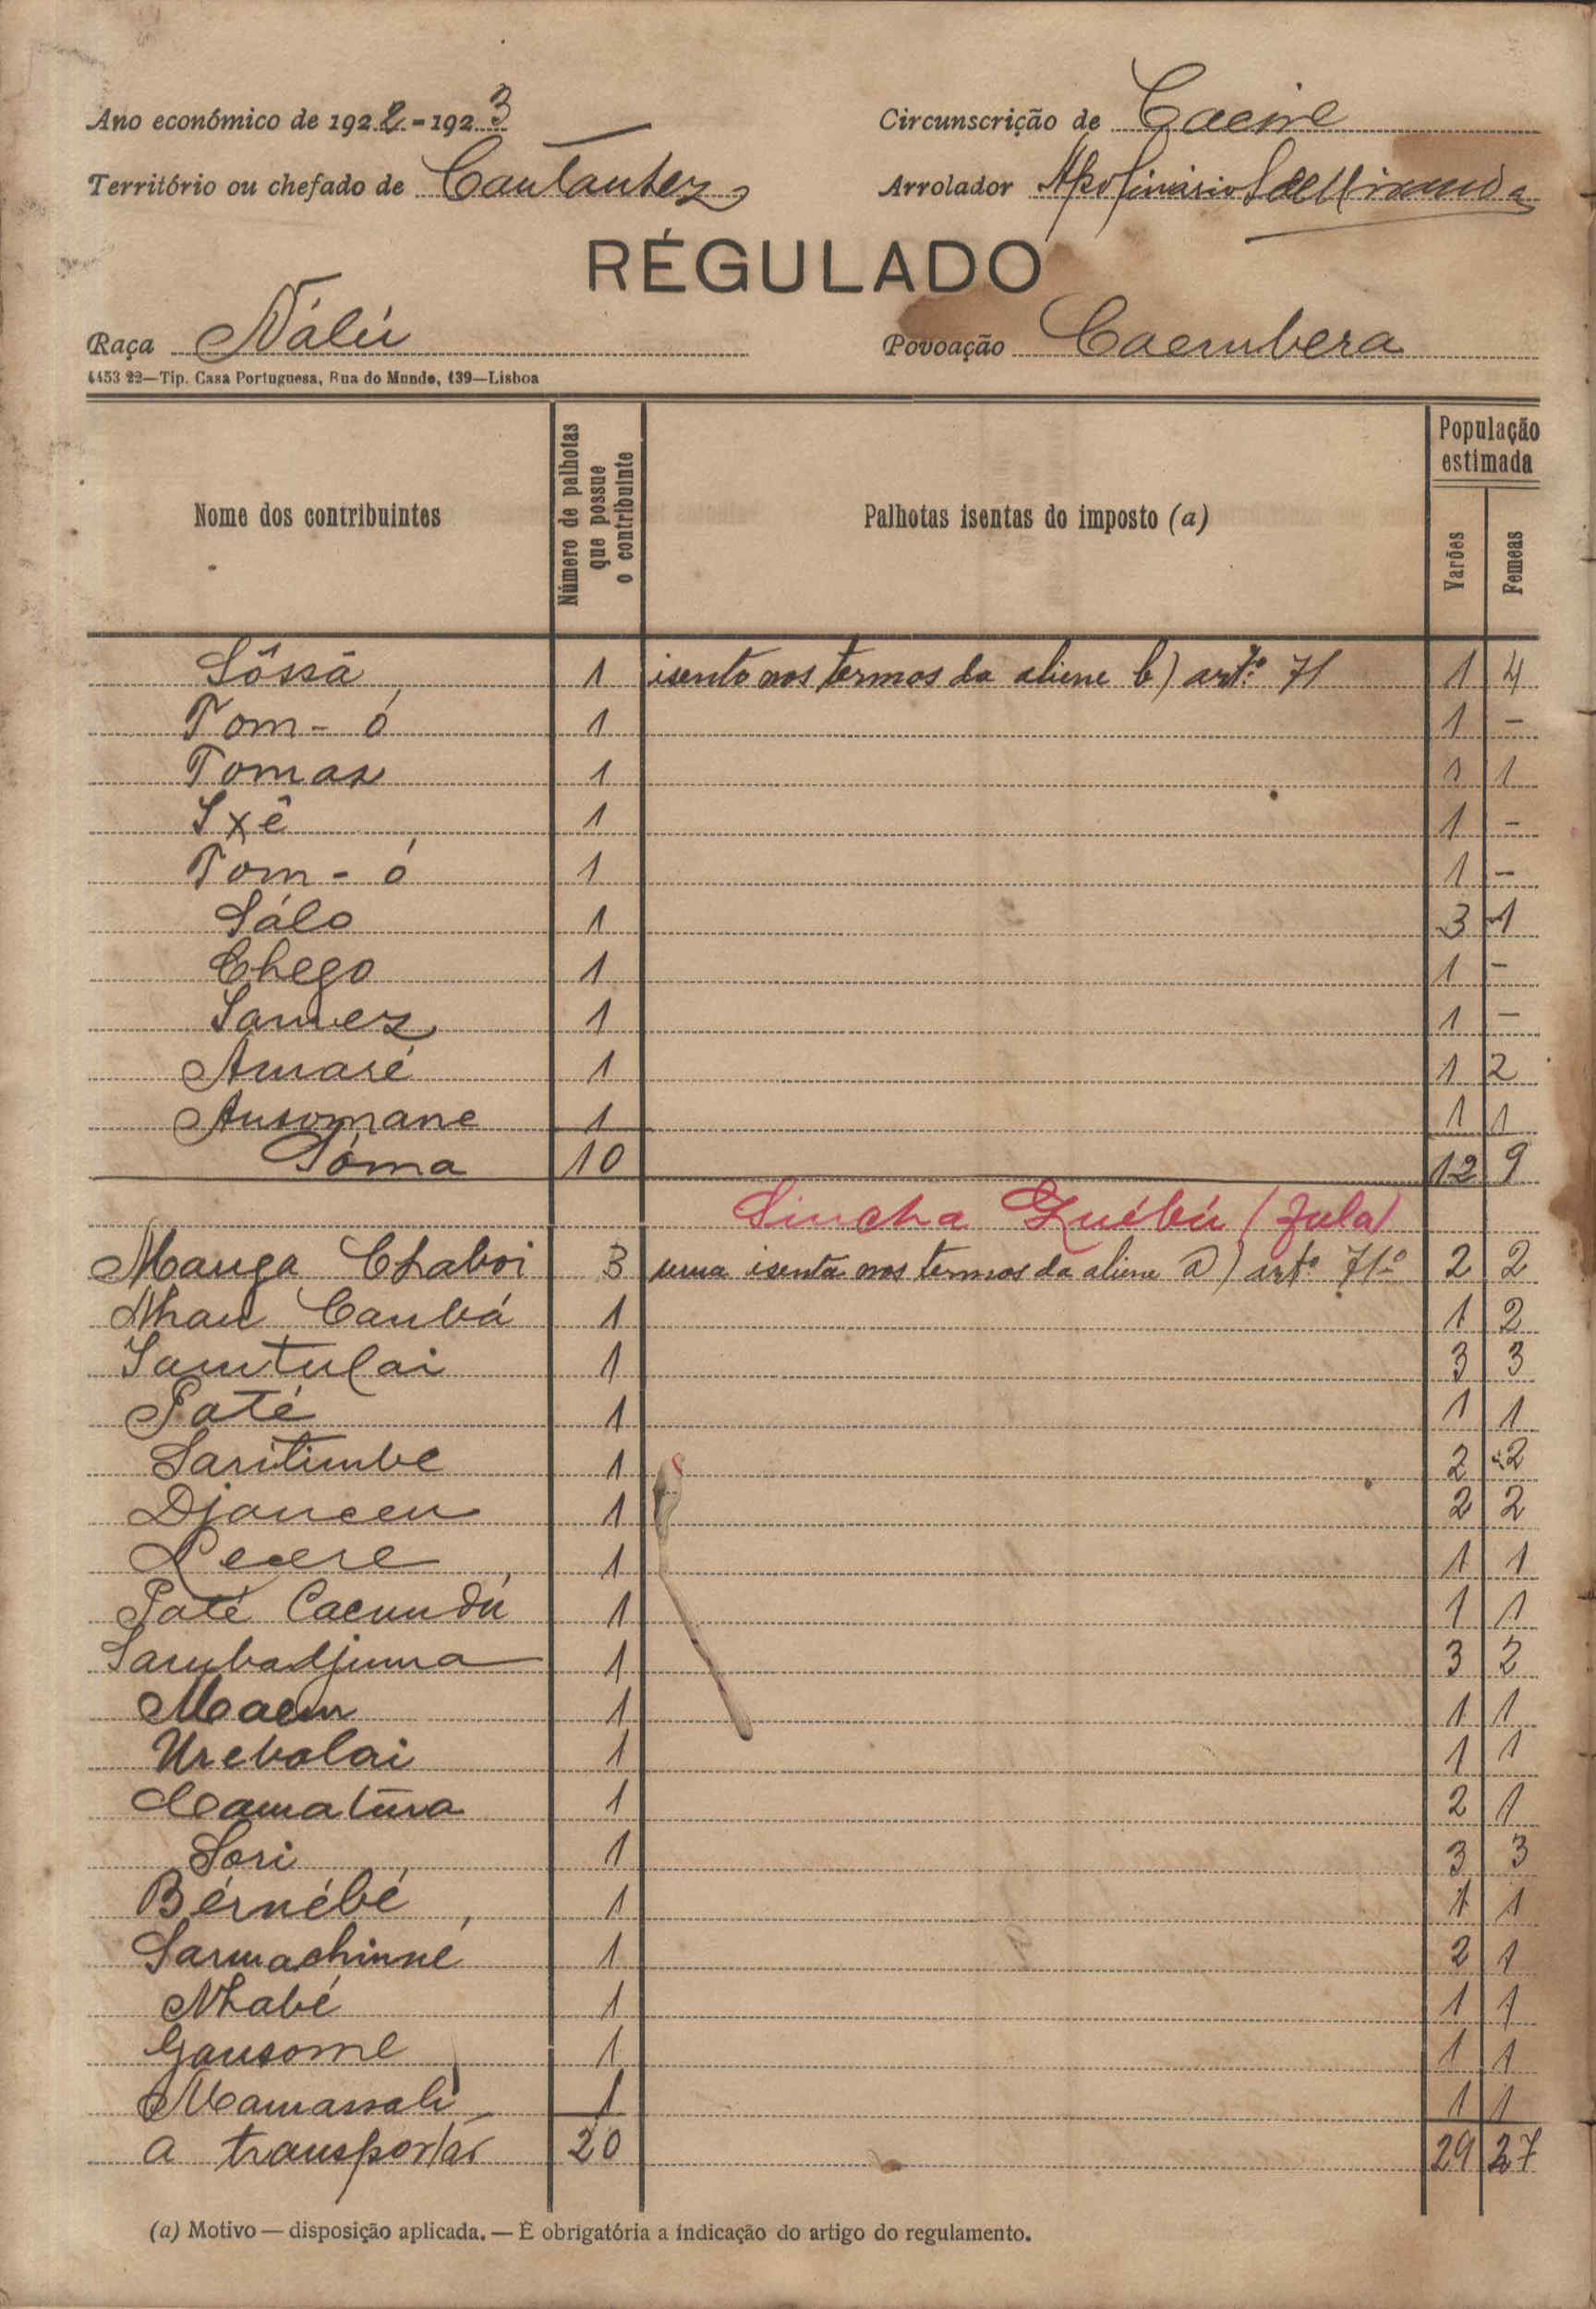 Ano económico de 1922-1923 Circunscrição de Cacine
Território ou chefado de Cantanhez Arrolador Apolinário de Miranda
RÉGULADO
Raça Nálú Povoação Caembera
4453 22—Tip. Casa Portuguesa, Rua do Mundo, 139—Lisboa
Nome dos contribuintes Número de palhotas que possue o contribuinte Palhotas isentas do imposto (a) População estimada Varões Femeas
Sôssã 1 isento nos termos da aliene b) artº 71 1 4
Tom-ó 1 1 -
Tomas 1 1 1
Ixê 1 1 -
Tom-ó 1 1 -
Sálo 1 3 1
Chego 1 1 -
Samez 1 1 -
Amaré 1 1 2
Ansomane 1 1 1
Sóma 10 12 9
Sincha Québú (fula)
Manga Chaboi 3 uma isenta nos termos da aliene a) artº 71º 2 2
Nhau Canbá 1 1 2
Samtulai 1 3 3
Paté 1 1 1
Saritimbe 1 2 2
Djanceu 1 2 2
1 1 1
Paté Cacundú 1 1 1
Sambadjuma 1 3 2
Macm 1 1 1
Urebalai 1 1 1
Camatūra 1 2 1
Sori 1 3 3
Bérnébé 1 1 1
Sarmachinné 1 2 1
Nhabé 1 1 1
Gansome 1 1 1
Mamassali 1 1 1
a transportar 20 29 27
(a) Motivo — disposição aplicada. — É obrigatória a indicação do artigo do regulamento.